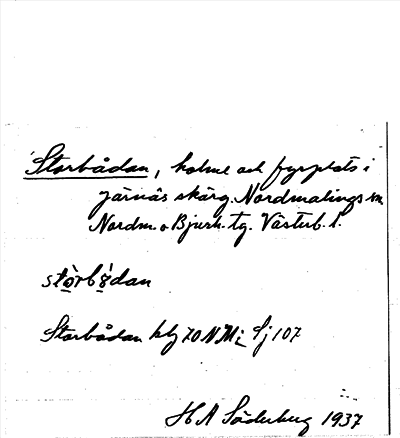 Storbådan, holme och fyrplats i
Järnäs skärg. Nordmalings sn
Nordm. o Bjurh. tg. Västerb. l.
Storbådan hbg 70 NM: Sj 107
H A Söderberg 1937